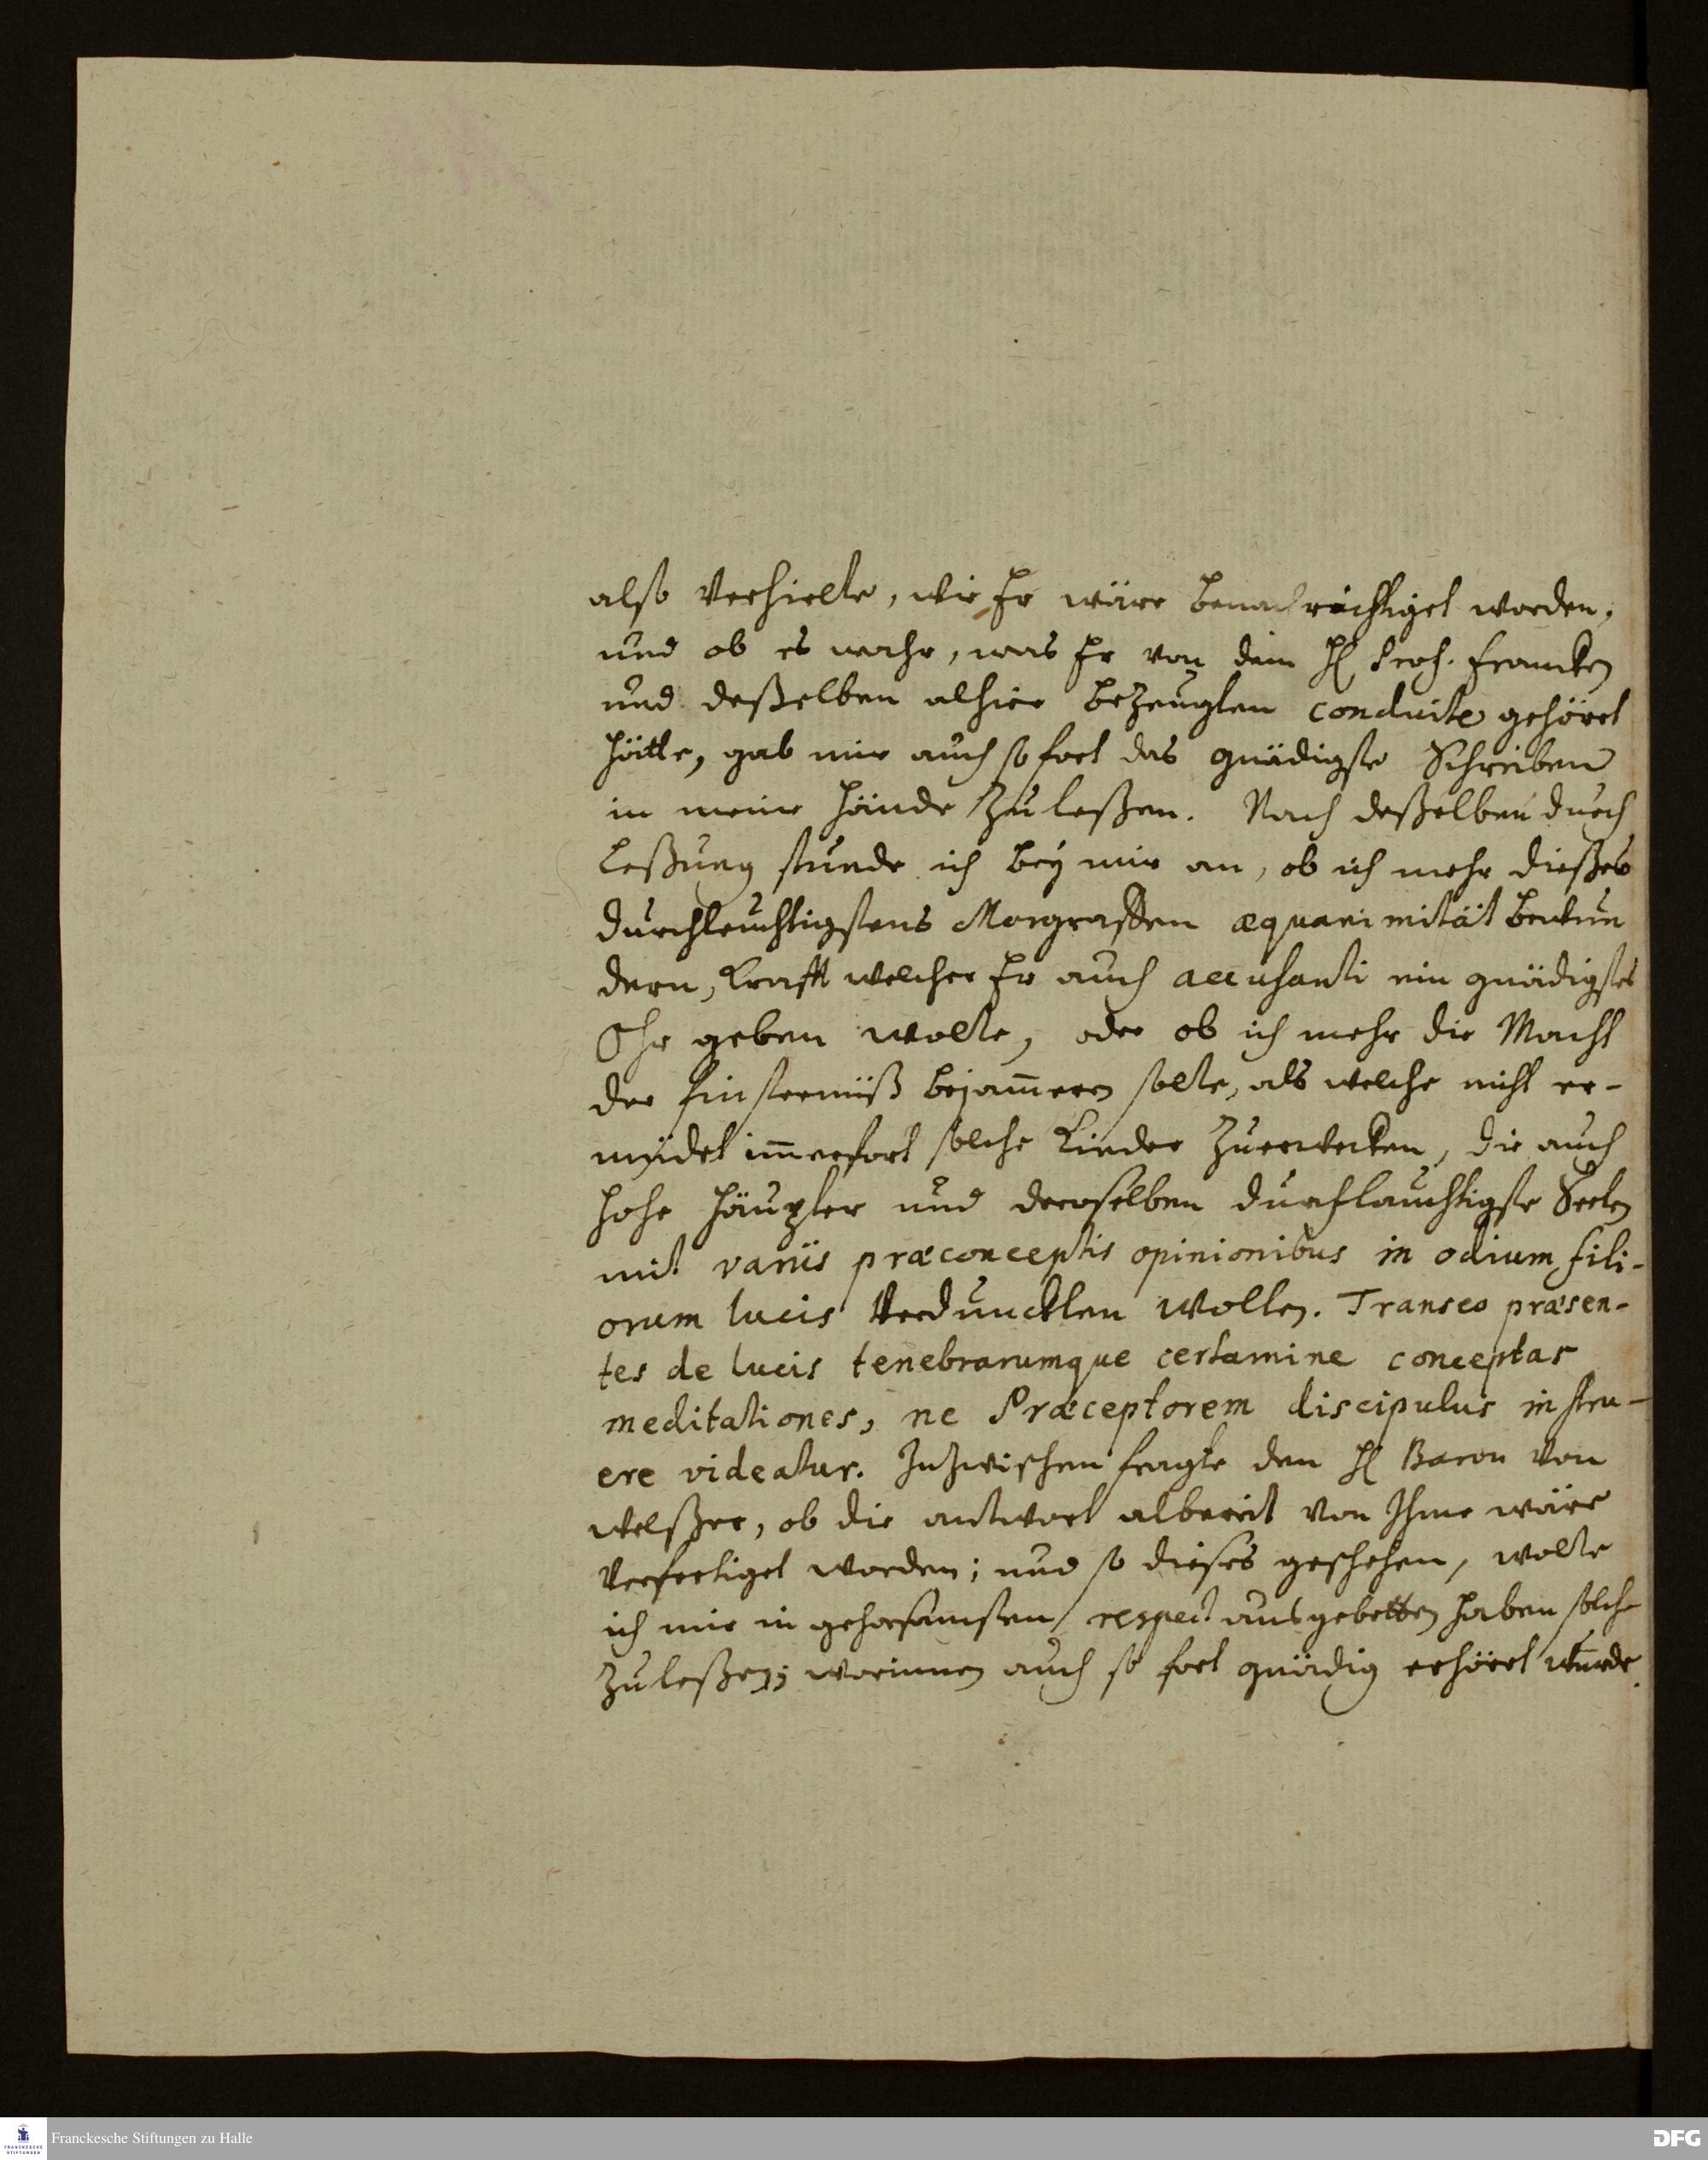 also verhielte, wie Er wäre benachrichtiget worden,
und ob es wahr, was Er von dem H. Prof. Francken
und deßelben alhier bezeugten conduite gehöret
hätte, gab mir auch so fort das gnädigste Schreiben
in meine Hände zu leßen. Nach deßelben durch
leßung stunde ich bey mir an, ob ich mehr dießes
durchleuchtigstens Margraffen æquanimität bewun
dern, krafft welcher Er auch accusanti ein gnädigstes
Ohr geben wolte, oder ob ich mehr die Macht
der finsternüß bejam̅ern solte, als welche nicht er-
müdet im̅erfort solche Kinder zuerwecken, die auch
hohe Häupter und deroselben durchlauchtigste Seelen
mit variis præconceptis opinionibus in odium fili-
orum lucis verduncklen wollen. Transeo præsen-
tes de lucis tenebrarumque certamine conceptas
meditationes, ne Præceptorem discipulus instru-
ere videatur. Inzwischen fragte den H. Baron von
welßer, ob die antwort albereit von Ihme wäre
verfertiget worden; und so dieses geschehen, wolte
ich mir in gehorsamsten respect ausgebetten haben solche
zu leßen; worinnen auch so fort gnädig erhöret wurde.
Franckesche Stiftungen zu Halle
FRANCKESCHE
STIFTUNGEN
DFG